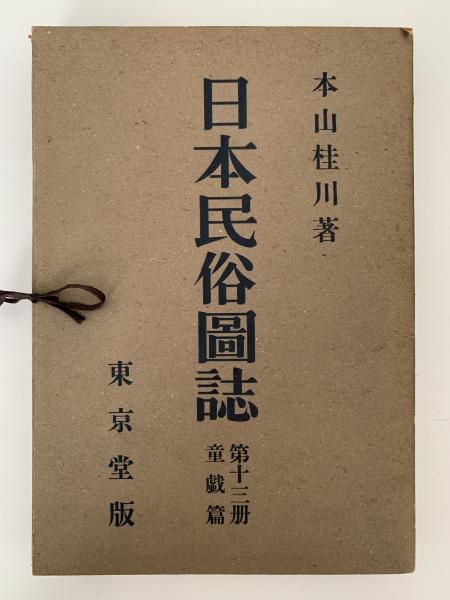 本山桂川著
日本民俗圖誌
第十三册
童戯篇
東京堂版